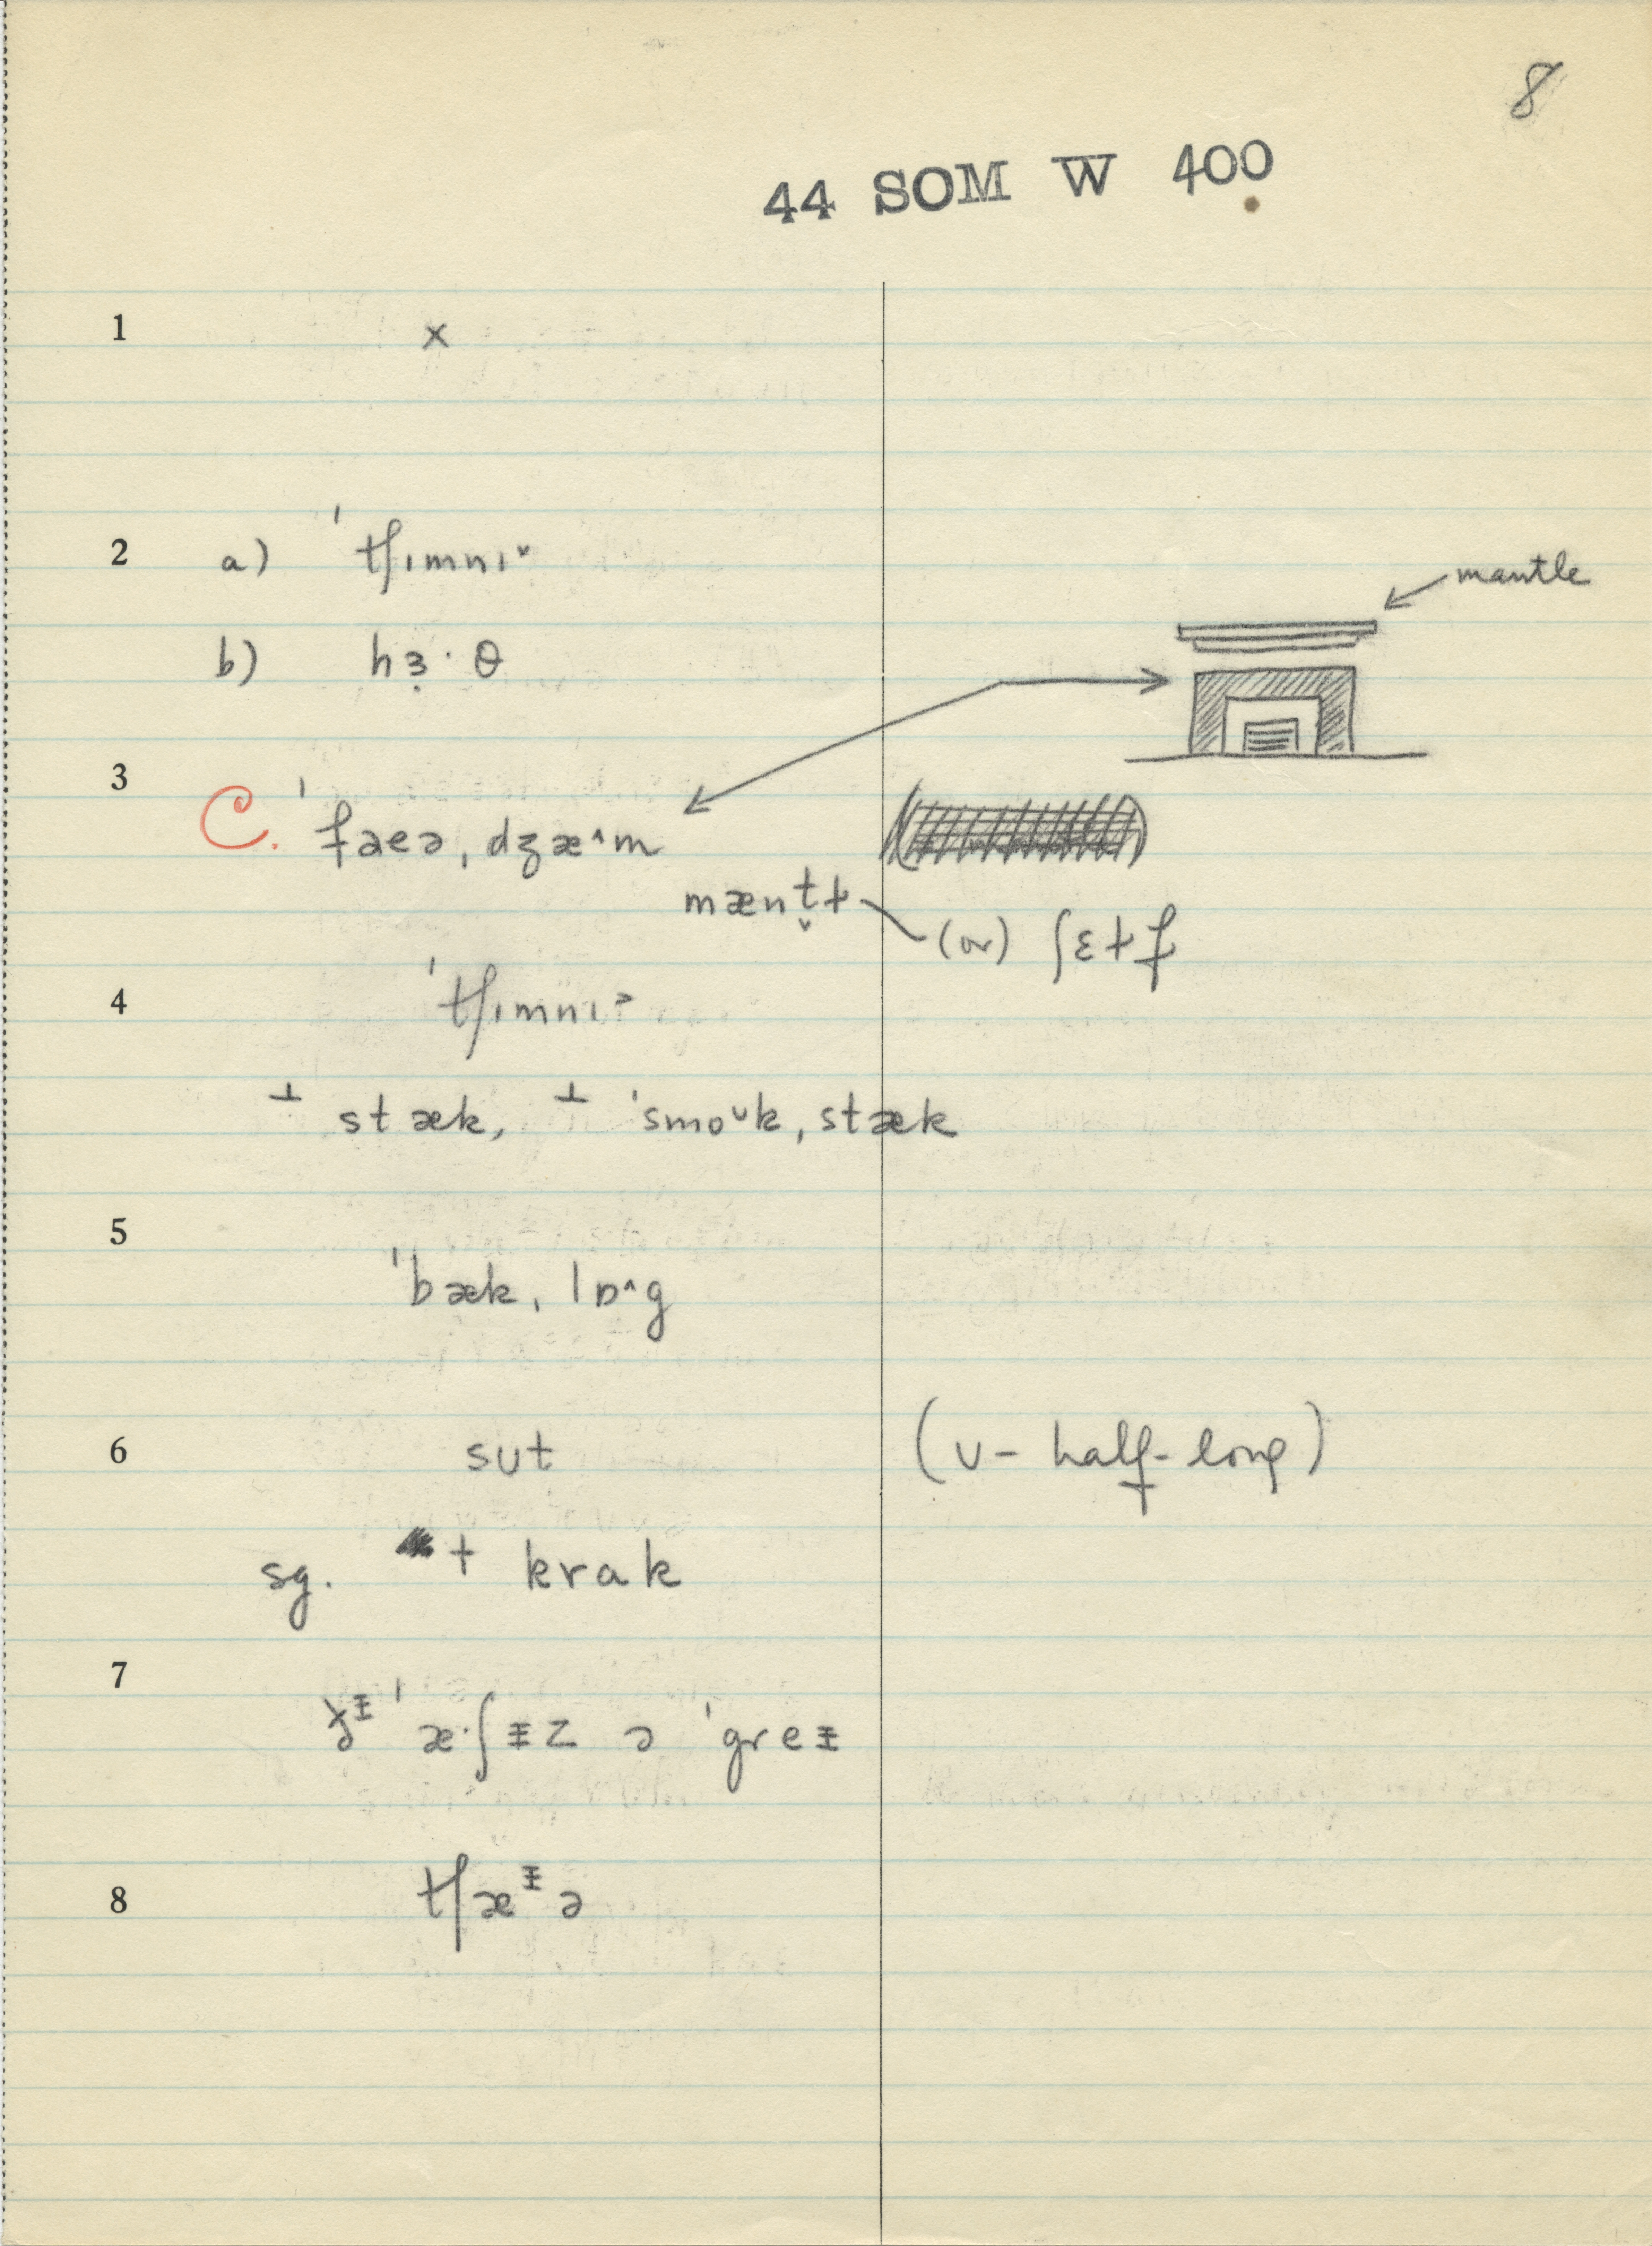 8
44 SOM W 400
1 x
2 a) ˈtʃɪmnɪ˅
mantle
b) hɜ̣· θ
3
C. ˈfaeə ˌdʒæ^m
mænt̬ɫ (or) ʃɛɫf
4 ˈtʃɪmnɪ˃
⊥ stæk, ⊥ ˈsmoᴜk ˌstæk
5
ˈbæk ˌlɒ^g
6 sʊt (ʊ - half-long)
sg. + krak
7
ðᵻ ˈæ·ʃᵻz ə ˈgreᵻ
8 tʃæᵻə